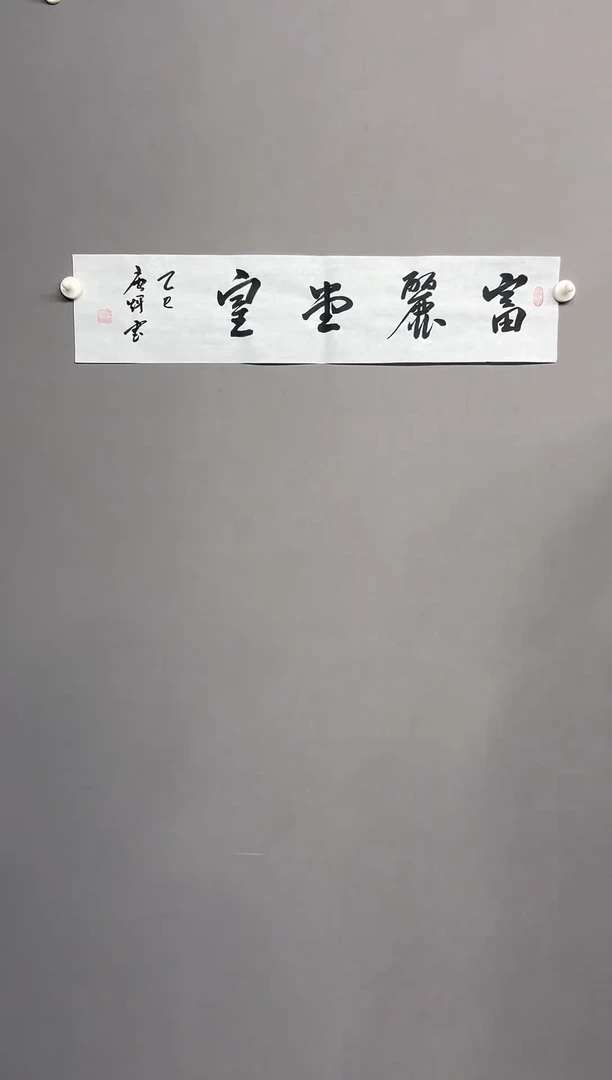 富麗堂皇
乙巳
唐輝書